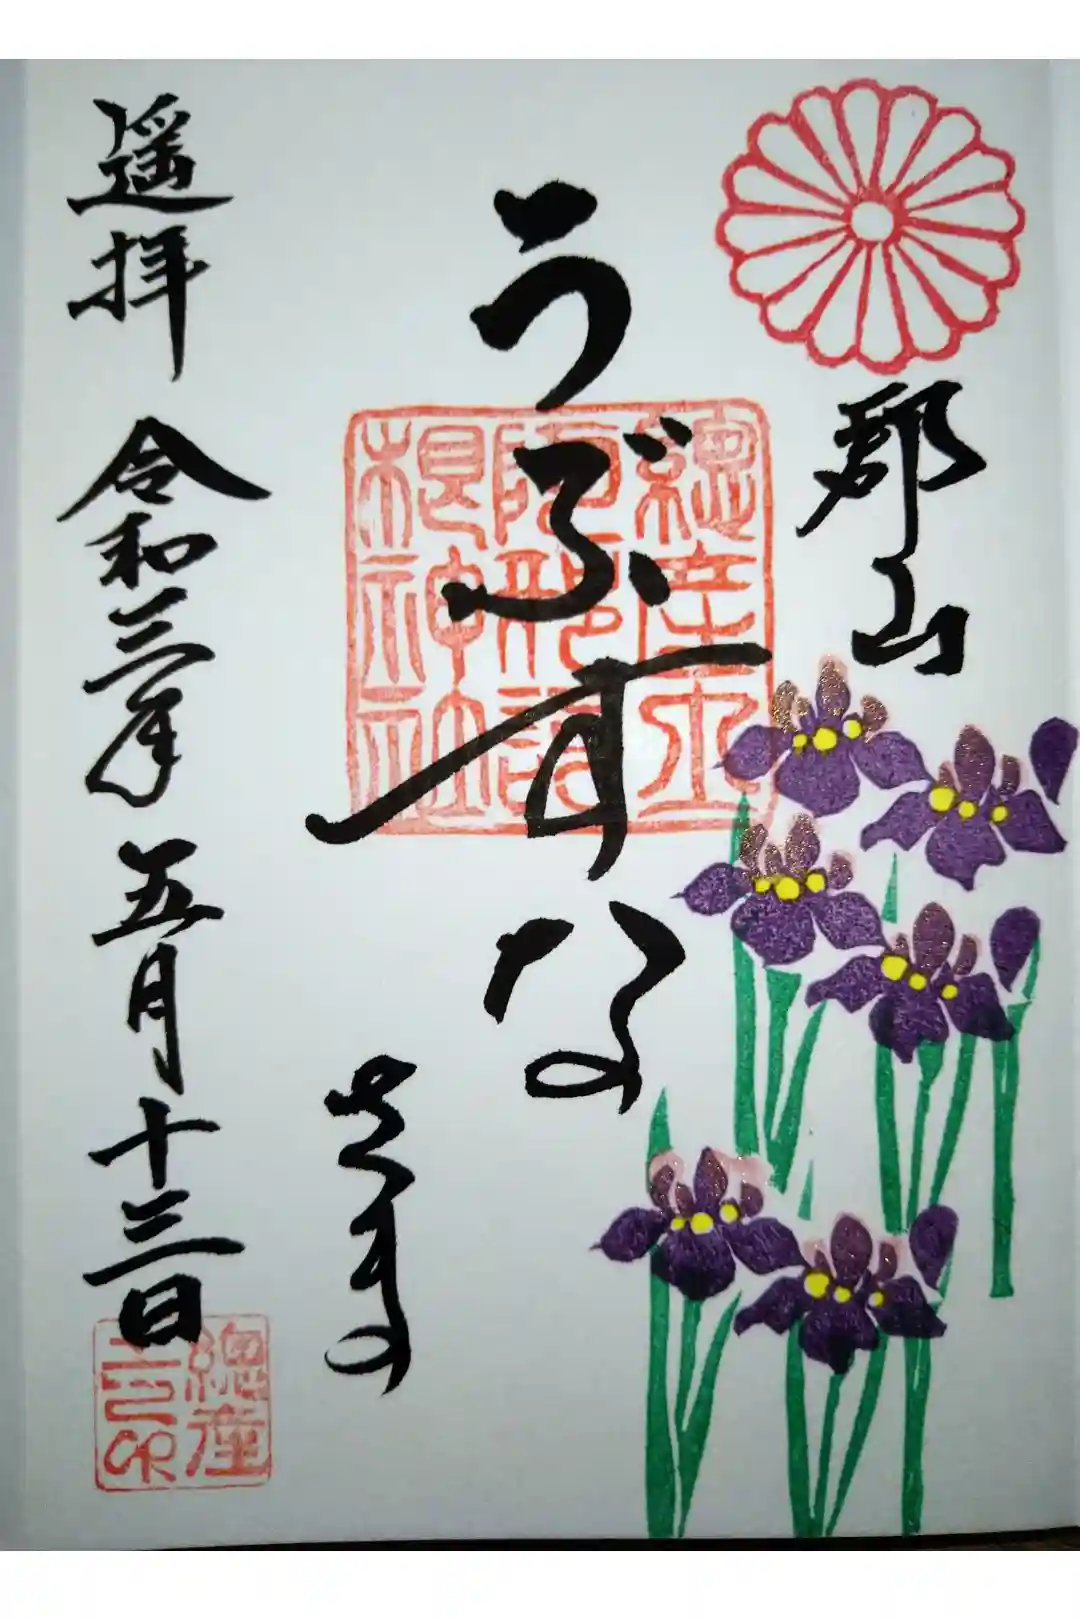 郡山
うぶすな
さま
遥拝
令和三年五月十三日
總産土
阿邪訶
根神社
總産
土印